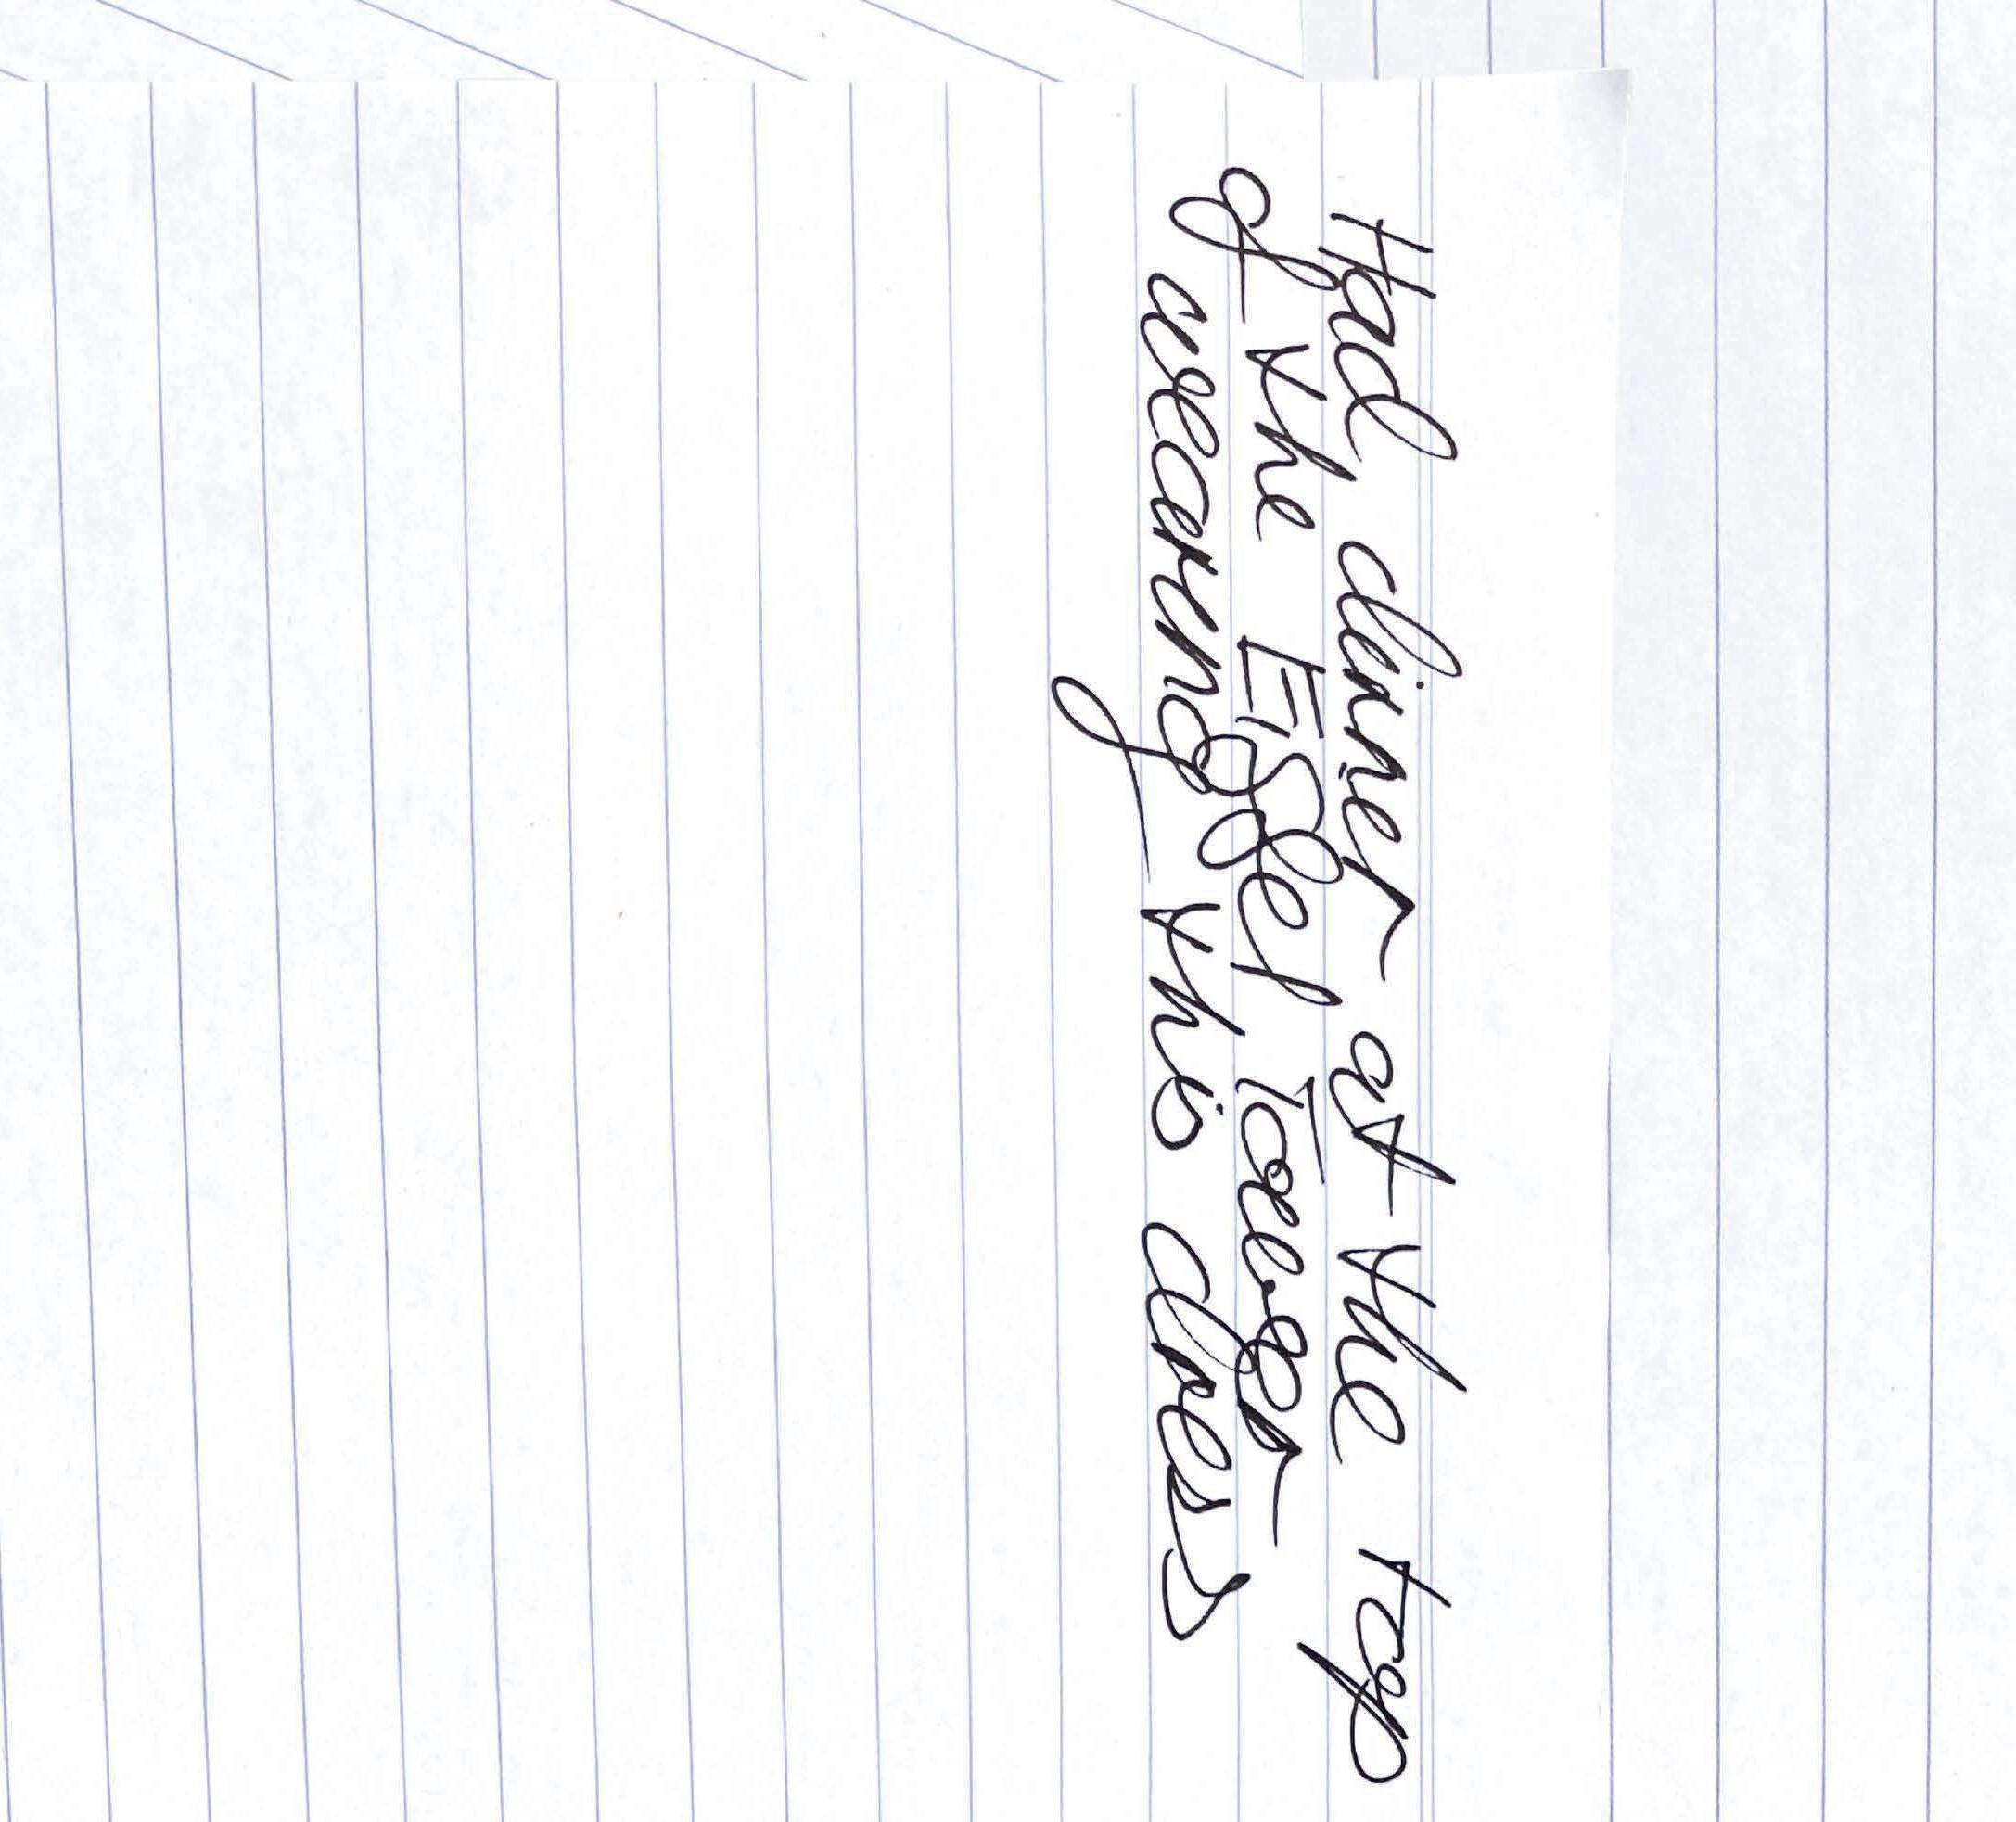 Had dinner at the top
of the Eiffel Tower
wearing this dress